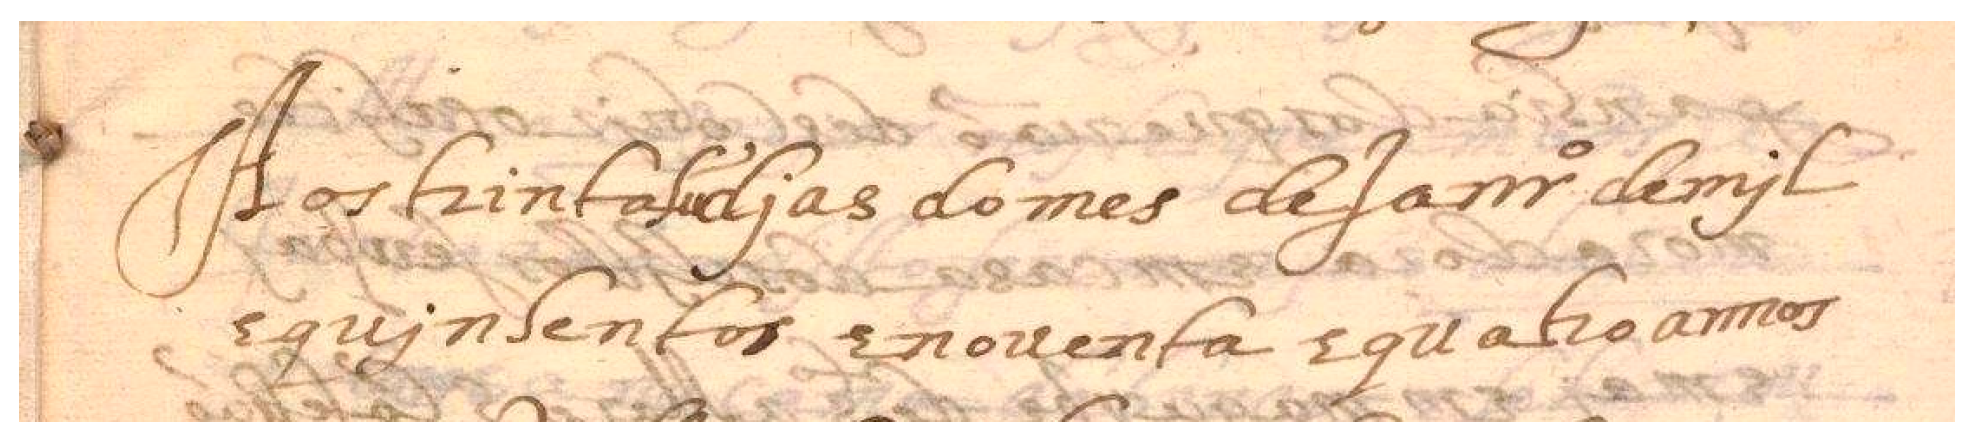 Aos trinta djas do mes de Janrº de mjl
e qujnsentos e noventa e quatro annos